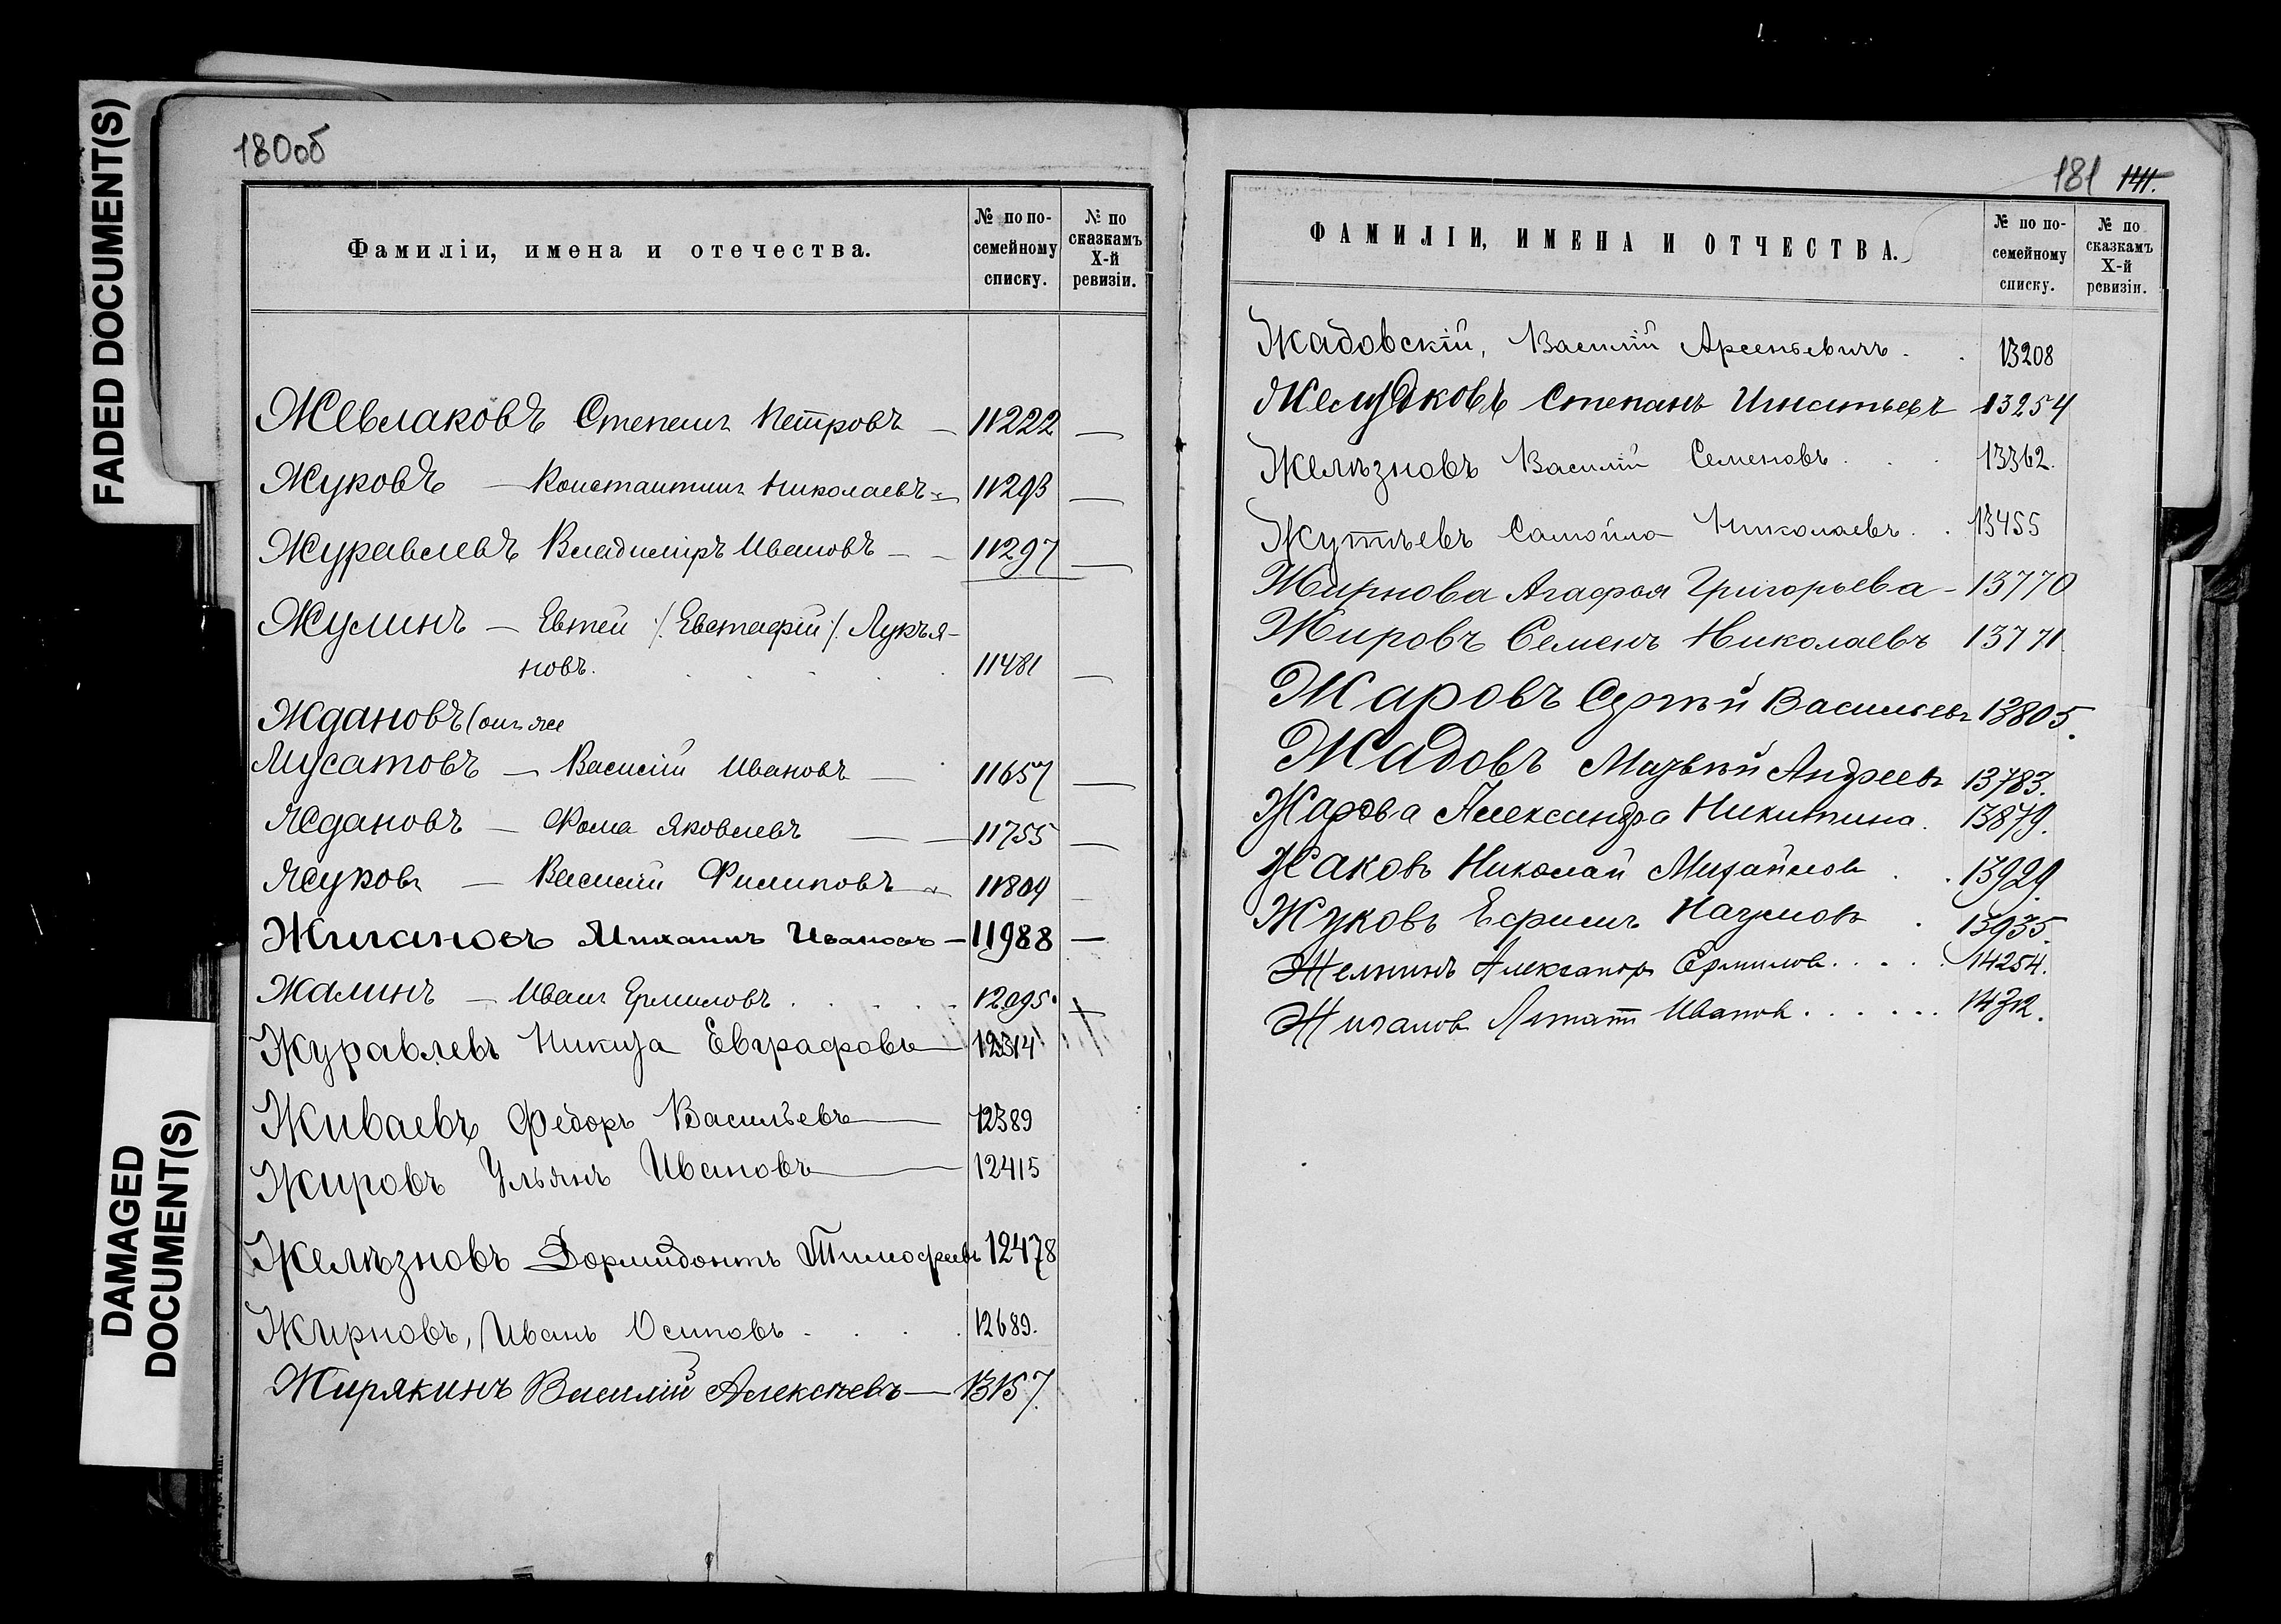 FADED DOCUMENT(S)
DAMAGED DOCUMENT(S)
180об
Фамиліи, имена и отечества.
№ по по-семейному списку.
№ по сказкамъ X-й ревизіи.
Жевлаковъ Степанъ Петровъ — 11222 —
Жуковъ — Константинъ Николаевъ — 11293 —
Журавлевъ Владиміръ Ивановъ — — 11297 —
Жулинъ — Евтей /. Евстафій ./ Лукья-
новъ. 11481 —
Ждановъ (онъ же
Мусатовъ — Василій Ивановъ — 11657 —
Ждановъ — Фома Яковлевъ — — 11755 —
Жуковъ — Василій Филиповъ — 11809 —
Жигановъ Михаилъ Ивановъ — 11988 —
Жалинъ — Иванъ Ермиловъ . . . . 12095. —
Журавлевъ Никита Евграфовъ — 12314
Живаевъ Федоръ Васильевъ — 12389
Жировъ Ульянъ Ивановъ — 12415
Желѣзновъ Дормидонтъ Тимофеевъ 12478
Жирновъ, Иванъ Осиповъ . . . . 12689.
Жирякинъ Василій Алексѣевъ — 13157.
181 141.
ФАМИЛІИ, ИМЕНА И ОТЧЕСТВА.
№ по по-семейному списку.
№ по сказкамъ X-й ревизіи.
Жадовскій, Василій Арсеньевичъ . . 13208
Желудковъ Степанъ Игнатьевъ 13254
Желѣзновъ Василій Семеновъ . . . 13362.
Жутѣевъ Самойло Николаевъ . . 13455
Жирнова Агафья Григорьева - 13770
Жировъ Семенъ Николаевъ 13771.
Жаровъ Сергѣй Васильевъ 13805.
Жадовъ Андреевъ 13783.
Жарова Александра Никитина . 13879.
Жаковъ Николай Михайлов . . 13929.
Жуковъ Ефимъ Наумовъ . 13935.
Александръ Ермилов . . . . . 14254.
Жигалов Иванов . . . . . . 14312.